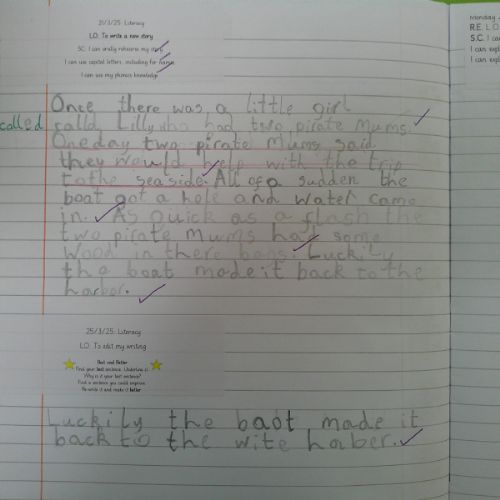 21/3/25 Literacy
LO: To write a new story
SC: I can orally rehearse my story
I can use capital letters, including for names
I can use my phonics knowledge
Once there was a little girl
called calld Lilly who had two pirate Mums.
One day two pirate Mums said
they would help with the trip
to the sea side. All of a sudden the
boat got a hole and water came
in. As quick as a flash the
two pirate Mums had some
wood in there bags. Luckily
the boat made it back to the
harbor.
25/3/25 Literacy
LO: To edit my writing
Best and Better
Find your best sentence. Underline it.
Why is it your best sentence?
Find a sentence you could improve.
Re-write it and make it better.
Luckily the baot made it
back to the wite haber.
Monday
R.E. L.O
S.C. I can
I can expl
I can expl